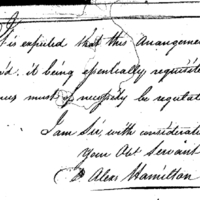 It is expected that this Arrangeme
d. it being essentially requisite
must of necessity be regulat
I am Sir, with considerat
Your Obt Servant
Alexr Hamilton